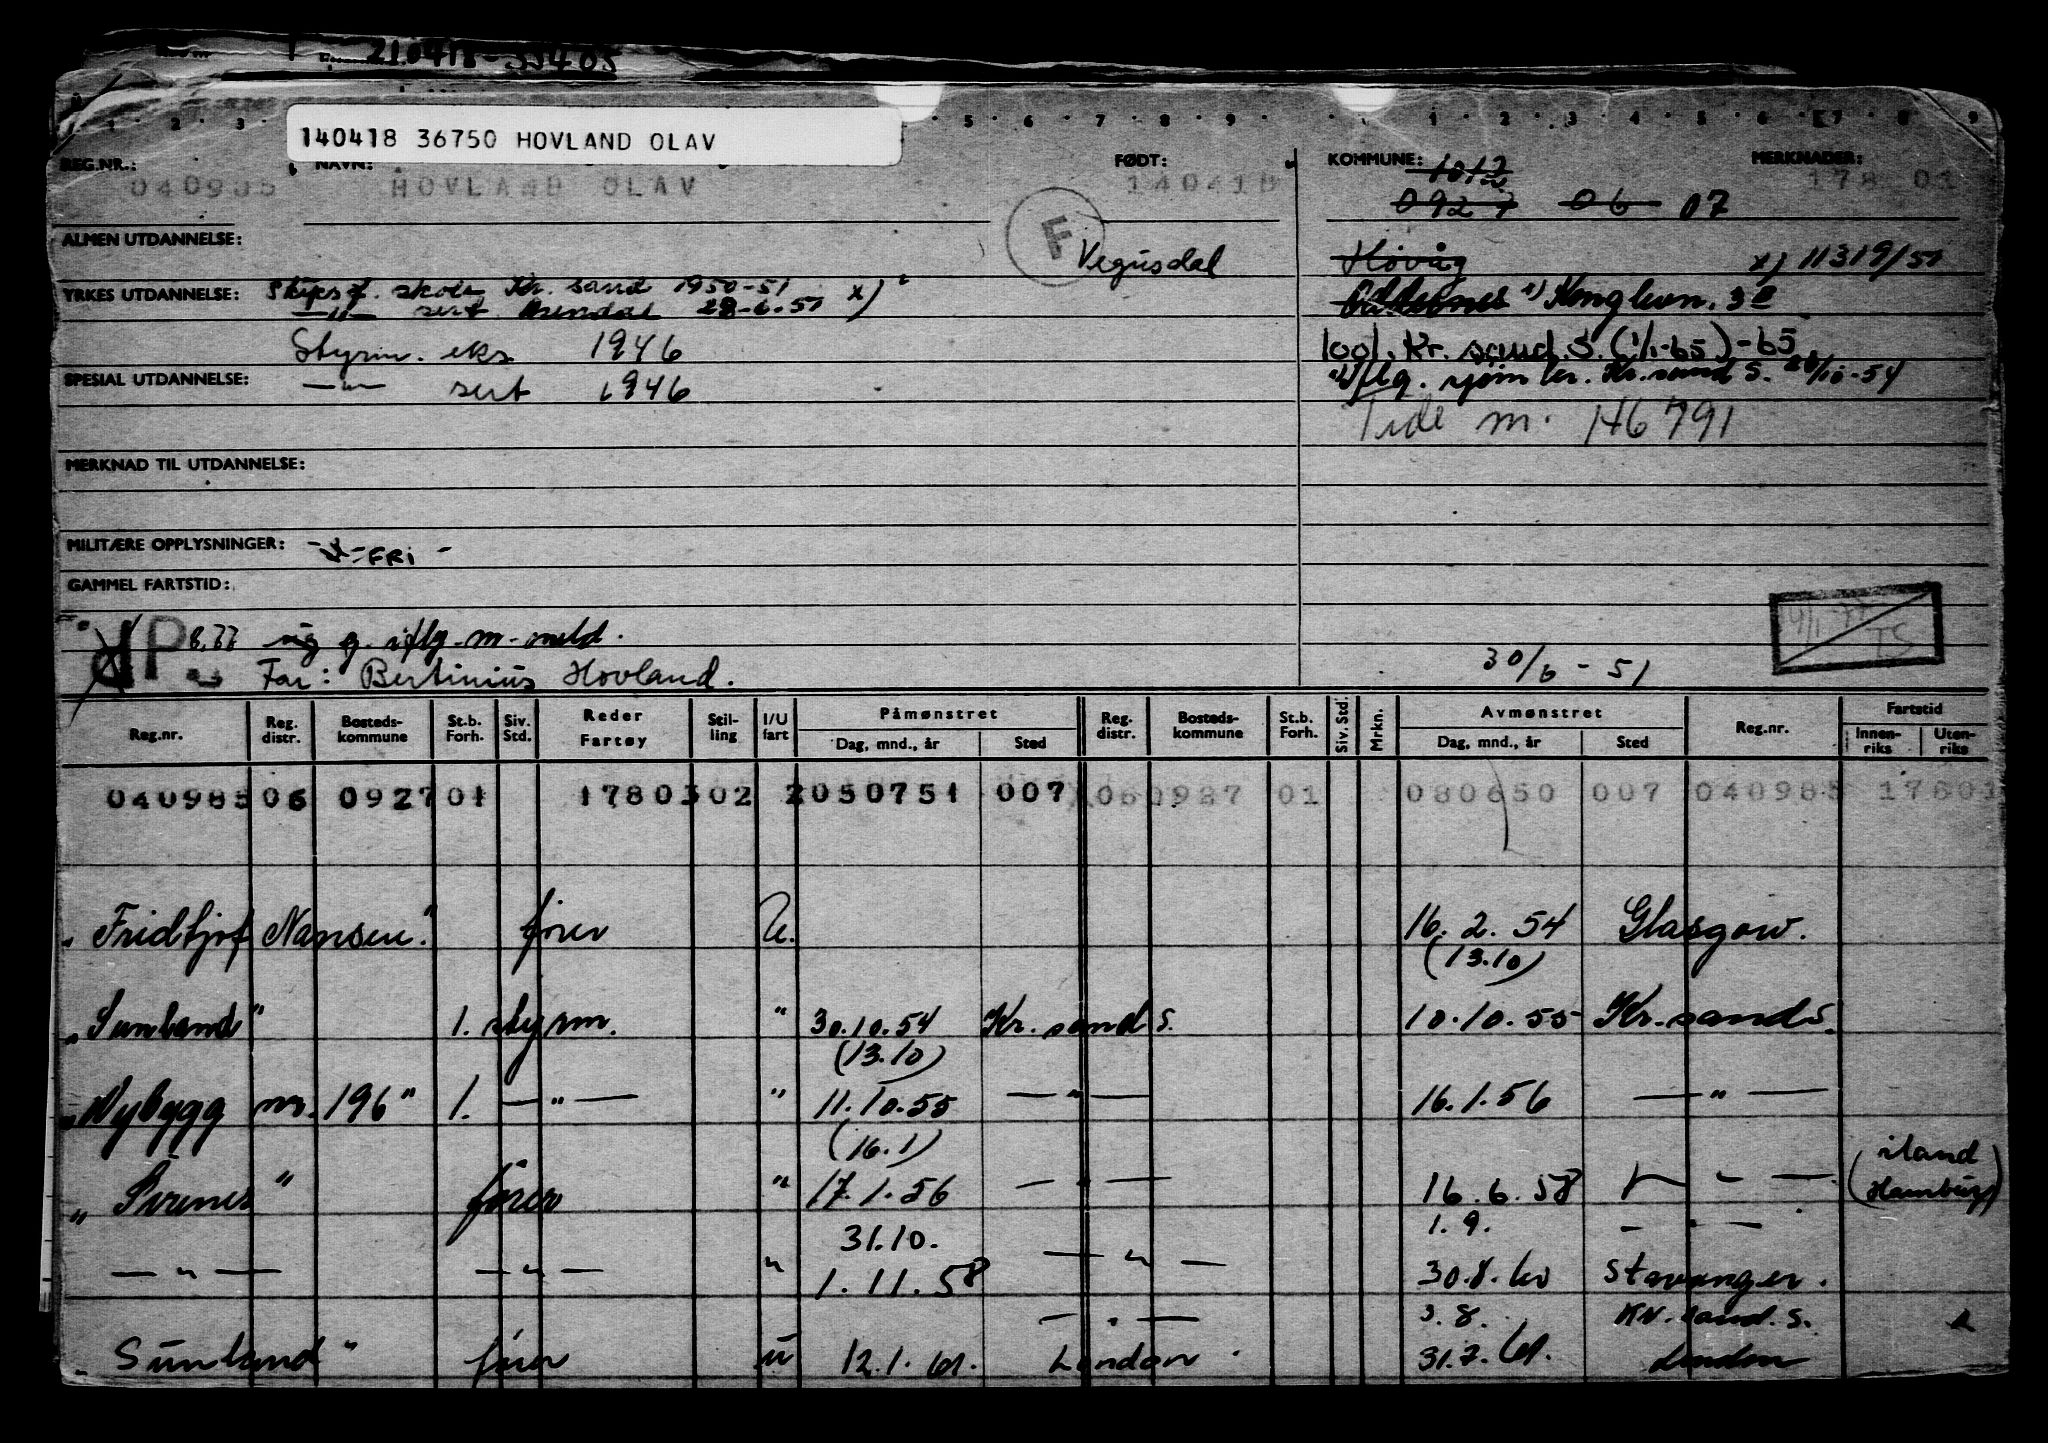 210418-
140418 36750 HOVLAND OLAV
REG.NR.: NAVN: FØDT: KOMMUNE: 1012 MERKNADER:
040985 HOVLAND OLAV 140418 178 01
0927 06 07
F
ALMEN UTDANNELSE: Vegusdal Høvåg x) 11319/51
YRKES UTDANNELSE: Skipsf. skole Kr. sand 1950-51 x)
—"— sert. Arendal 28-6-51
Styrm. eks. 1946 Kr. sand. S. (1/1-65)-65
SPESIAL UTDANNELSE: —"— sert 1946 Kr. sand S. 28/10-54
Tidl m. 146791
MERKNAD TIL UTDANNELSE:
MILITÆRE OPPLYSNINGER: FRI -
GAMMEL FARTSTID:
P 8.77 g. iflg. m-meld.
Far: Bertinius Hovland. 30/6-51
Reg.nr. Reg. distr. Bosteds-kommune St.b. Forh. Siv. Std. Reder Fartøy Stil-ling I/U fart Påmønstret Dag, mnd., år Sted Reg. distr. Bosteds-kommune St.b. Forh. Siv. Std. Mrkn. Avmønstret Dag, mnd., år Sted Reg.nr. Fartstid Innen-riks Uten-riks
040985 06 0927 01 1780302 2050751 007 060927 01 080650 007 040985 17801
"Fridtjof Nansen" fører U. 16.2.54 Glasgow.
(13.10)
"Sunland" 1. styrm. " 30.10.54 Kr. sand S. 10.10.55 Kr. sand S.
(13.10)
"Nybygg nr. 196" 1. —"— " 11.10.55 —"— 16.1.56 —"—
(16.1)
"Sirenes" fører " 17.1.56 —"— 16.6.58 —"— (iland Hamburg)
31.10. 1.9. —"—
—"— —"— " 1.11.58 —"— 30.8.60 Stavanger.
—"— 3.8. Kr. sand. S.
"Sunland" fører u 12.1.61. London 31.7.61. London